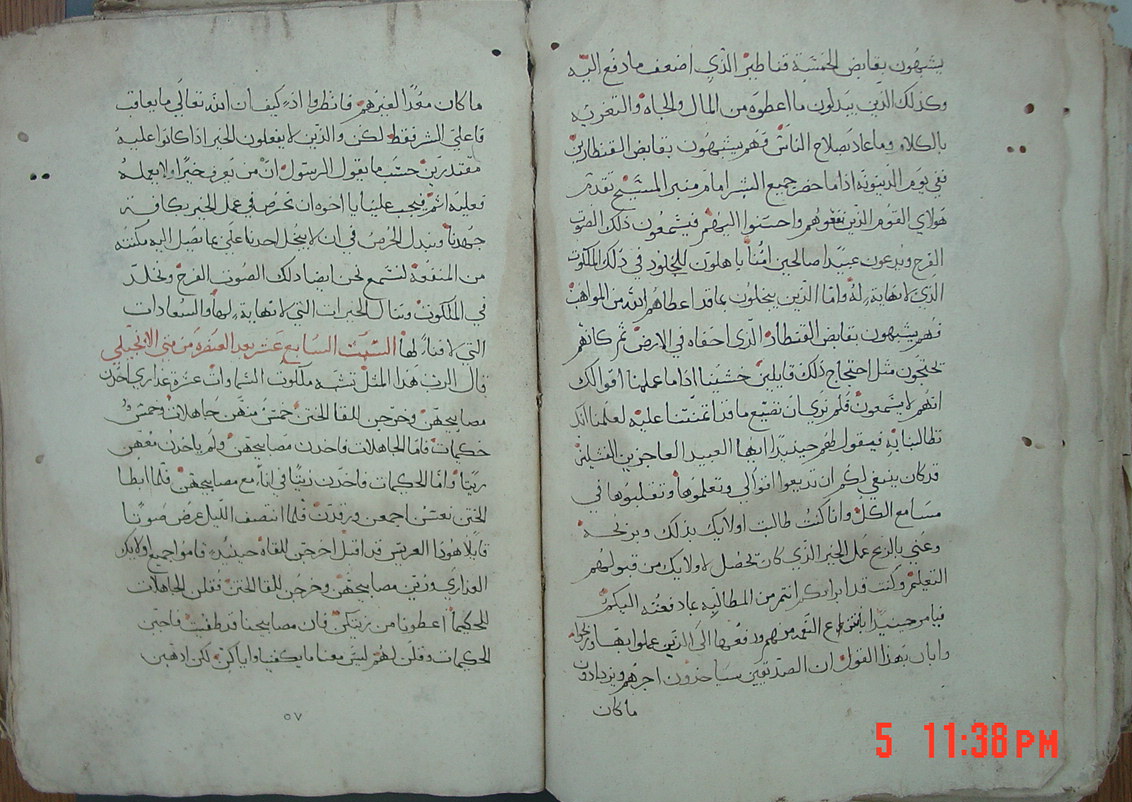 يشبهون بقابض الخمسة قناطير الذي اضعف ما دفع اليه
وكذلك الذين يبدلون ما اعطوه من المال والجاه والتعزيه
بالكلام وما عاد بصلاح الناس فهم يشبهون بقابض القنطارين
ففي يوم الدينونه اذا ما حضر جميع البشر امام منبر المسيح تقدم
هولاي القوم الذين نفعوهم واحسنوا اليهم فيسمعون ذلك الصوت
الفرح ويدعون عبيدا صالحين امنا ياهلون للخلود في ذلك الملكوت
الذي لا نهاية له واما الذين يبخلون بما قد اعطاهم الله من المواهب
فهم يشبهون بقابض القنطار الذي اخفاه في الارض ثم كانهم
يحتجون مثل احتجاج ذلك قايلين خشينا اذا ما علمنا اقوالك
انهم لا يسمعون فلم نري ان نضيع ما قد ائتمنتنا عليه لعلمنا انك
تطالبنا به فيقول لهم حينيذ ايها العبيد العاجزين
قد كان ينبغي لكم ان تذيعوا اقوالي وتعلموها وتقلبوها في
مسامع الكل وانا كنت طالبت اولايك بذلك وبربحه
وعني بالربح عمل الخير الذي كان يحصل لاولايك من قبولهم
التعليم وكنت قد ابراتكم انتم من المطالبه بما دفعته اليكم
فيامر حينيذ النعمه منهم ودفعها الى الذين عملوا بها
وابان بهذا القول ان الصديقين سياخذون اجرهم ويزدادون
ما كان
ما كان معدا لغيرهم فانظروا اذا كيف ان الله تعالي ما يعاقب
فاعلي الشر فقط لكن والذين لا يفعلون الخير اذا كانوا عليه
مقتدرين حسب ما يقول الرسول ان من يعرف خيرا ولا يعمله
فعليه اثم فيجب علينا يا اخوه ان نحرص في عمل الخير بكافة
جهدنا ونبدل الحرص في ان لا يبخل احدنا علي بما يصل اليه مكنته
من المنفعة لنسمع نحن ايضا ذلك الصوت الفرح ونخلد
في الملكوت وننال الخيرات التي لا نهاية لها والسعادات
التي لا فناء لها السبت السابع عشر بعد العنصره من متي الانجيلي
قال الرب هذا المثل تشبه ملكوت السماوات عشرة عذاري اخذن
مصابيحهن وخرجن للقا الختن خمس منهن جاهلات وخمس
حكيمات فاما الجاهلات فاخذن مصابيحهن ولم ياخذن معهن
زيتا واما الحكيمات فاخذن زيتا في اناء مع مصابيحهن فلما ابطا
الختن نعسن اجمعن ورقدن فلما انتصف الليل عرض صوتا
قايلا هوذا العريس قد اقبل اخرجن للقاه حينيذ قاموا جميع اولايك
العذاري وزين مصابيحهن وخرجن للقا الختن فقلن الجاهلات
للحكيما اعطونا من زيتكن فان مصابيحنا قد طفت فاجبن
الحكيمات وقلن لهم ليس معنا ما يكفينا واياكن لكن اذهبن
٥٧
5 11:38 PM